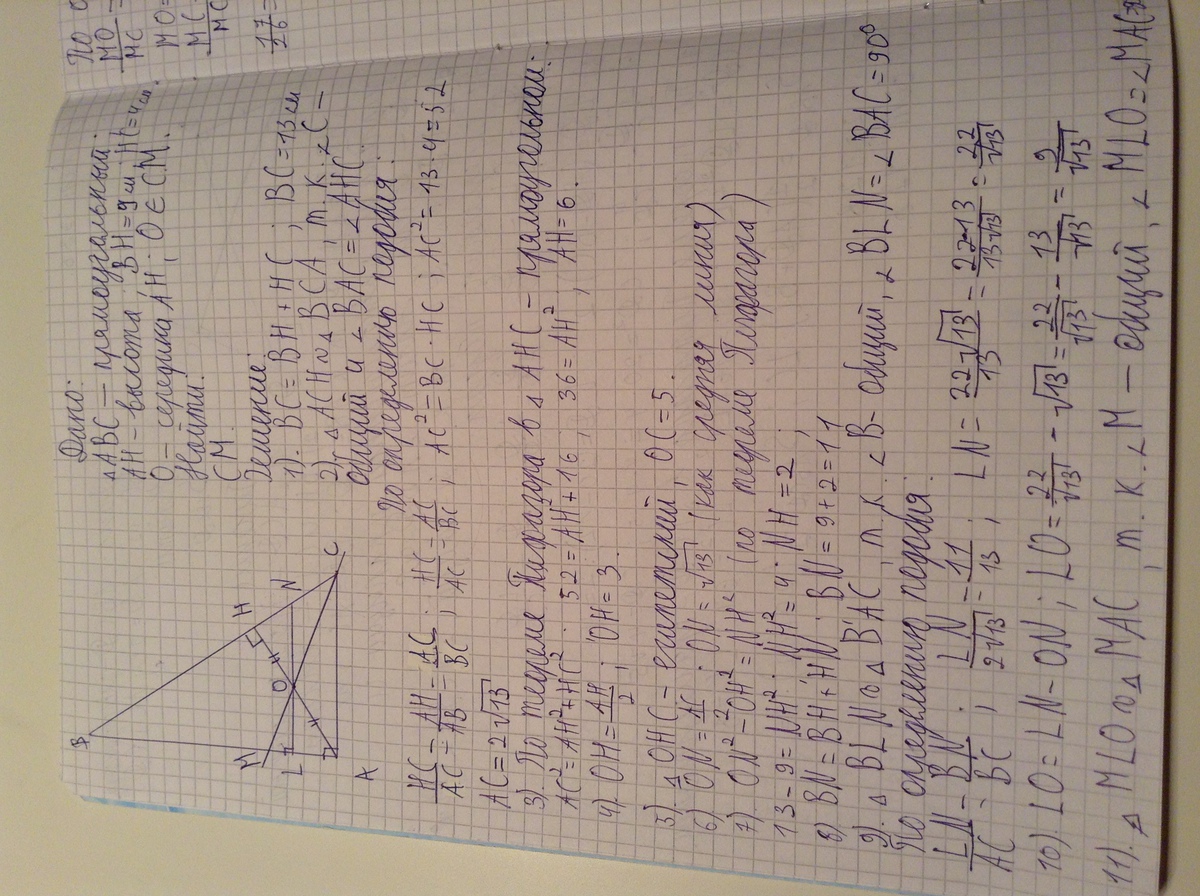 Дано:
△ABC — прямоугальный.
AH - высота, BH=9см, HC=4см.
O - середина AH; O ∈ CM.
Найти:
CM
Решение:
1). BC = BH + HC ; BC = 13 см
2). △ ACH ∾ △ BCA, т. к. ∠C -
общий и ∠BAC = ∠AHC
По определению подобия:
HC/AC = AH/AB = AC/BC ; HC/AC = AC/BC ; AC² = BC · HC ; AC² = 13 · 4 = 52
AC = 2√13
3) По теореме Пифагора в △ AHC - прямоугольном:
AC² = AH² + HC² ; 52 = AH² + 16 ; 36 = AH² ; AH = 6.
4). OH = AH/2 ; OH = 3.
5). △ OHC - египетский, OC = 5.
6) ON = AC/2 ; ON = √13 (как средняя линия)
7) ON² - OH² = NH² (по теореме Пифагора)
13 - 9 = NH² ; NH² = 4 ; NH = 2
8) BN = BH + HN ; BN = 9 + 2 = 11
9). △ BLN ∾ △ BAC, т. к. ∠B - общий, ∠BLN = ∠BAC = 90°
По определению подобия:
LN/AC = BN/BC ; LN/2√13 = 11/13 ; LN = 22√13/13 = 22·13/13√13 = 22/√13
10). LO = LN - ON ; LO = 22/√13 - √13 = 22/√13 - 13/√13 = 9/√13
11). △ MLO ∾ △ MAC, т. к. ∠M — общий, ∠MLO = ∠MAC
B
H
N
C
O
M
L
A
По
MO
MC
MO=
MC
MC
17
26